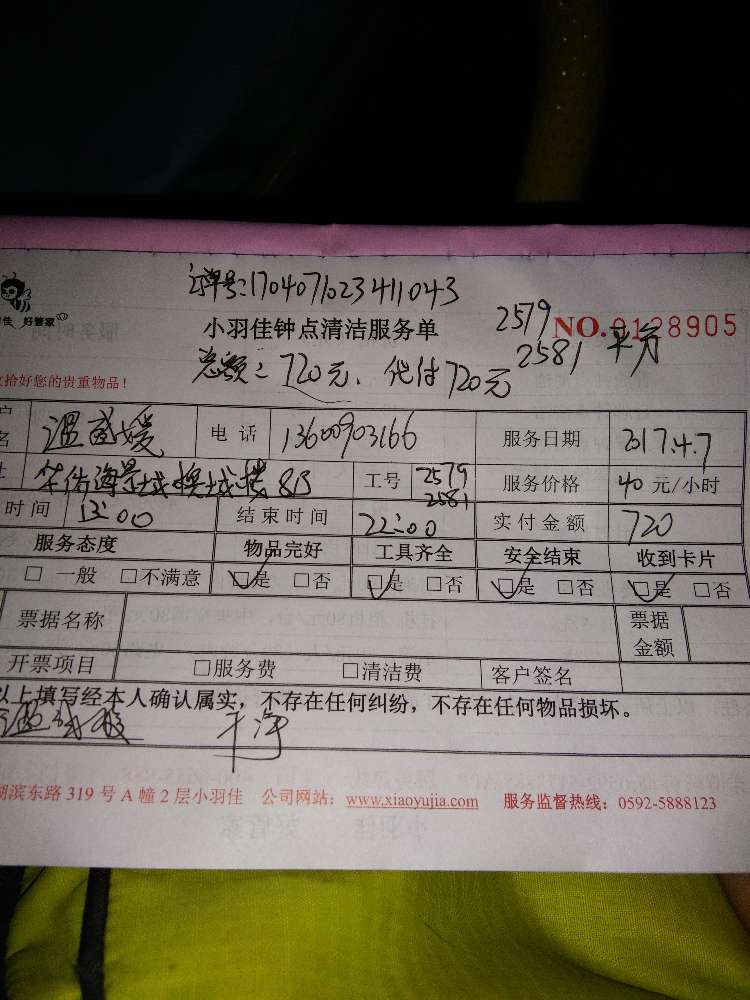 订单号:1704071023411043
佳 好管家
小羽佳钟点清洁服务单
2579
2581 平方
NO. 0128905
拾好您的贵重物品!
总额:720元、代付720元
户名 温 媛 电话 13600903166 服务日期 2017.4.7
海景城 城楼 813 工号 2579 2581 服务价格 40 元/小时
时间 13:00 结束时间 22:00 实付金额 720
服务态度 物品完好 工具齐全 安全结束 收到卡片
□ 一般 □不满意 ☑是 □否 ☑是 □否 ☑是 □否 ☑是 □否
票据名称 票据金额
开票项目 □服务费 □清洁费 客户签名
以上填写经本人确认属实,不存在任何纠纷,不存在任何物品损坏。
干净
湖滨东路 319 号 A 幢 2 层小羽佳 公司网站:www.xiaoyujia.com 服务监督热线:0592-5888123